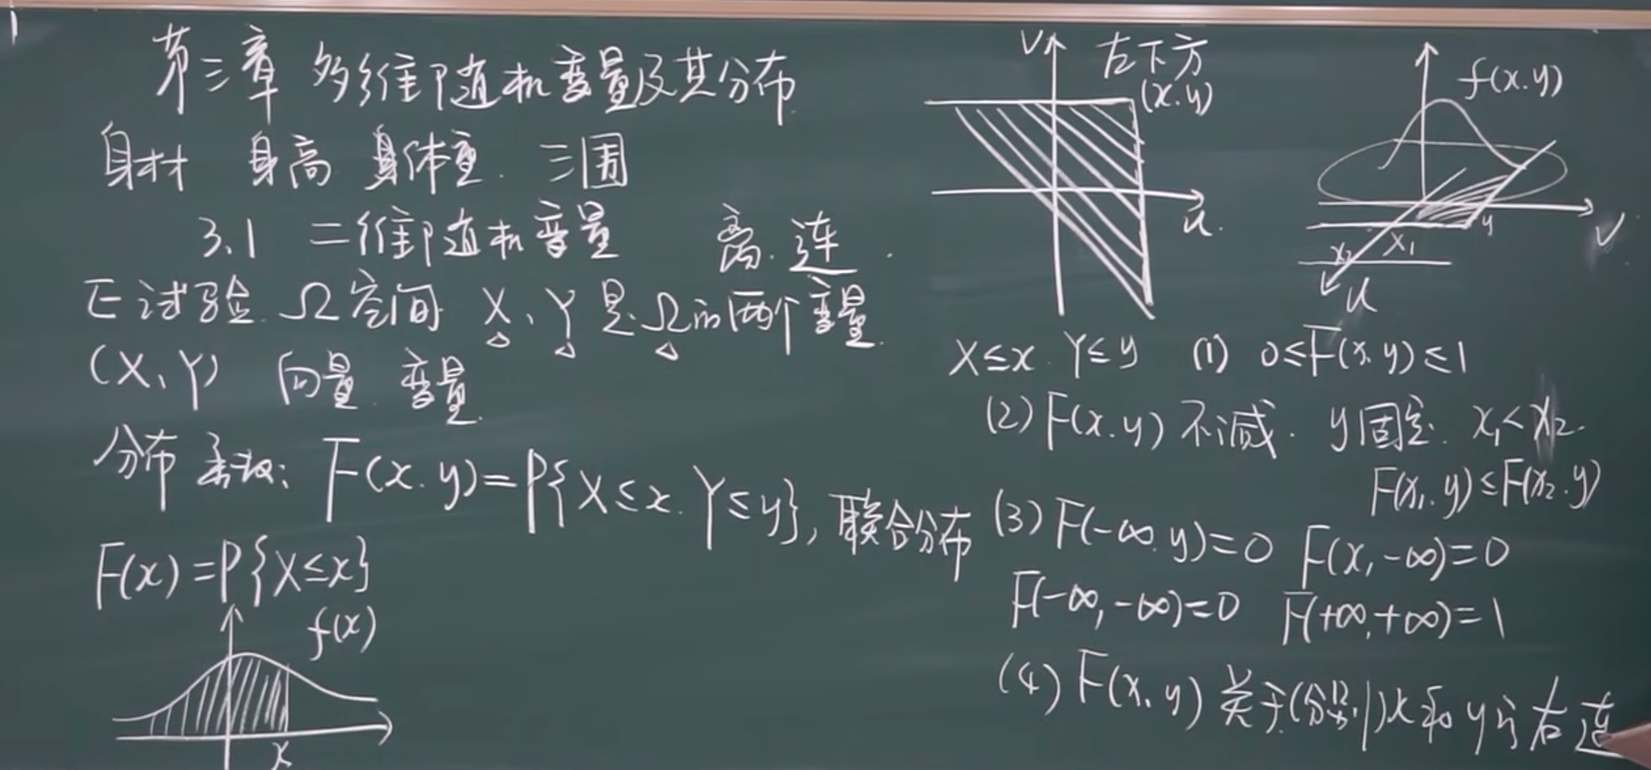 第三章 多维随机变量及其分布
身材 身高 身体重. 三围
3.1 二维随机变量 离. 连.
E 试验. Ω空间 X、Y 是Ω的两个变量.
(X、Y) 向量. 变量.
分布函数: F(x.y)=P{X≤x. Y≤y}, 联合分布
F(x)=P{X≤x}
f(x)
x
V 左下方
(x.y)
u.
f(x.y)
y
x₂ x₁
V
u
X≤x. Y≤y (1) 0≤F(x.y)≤1
(2) F(x.y) 不减. y固定. x₁<x₂.
F(x₁.y)≤F(x₂.y)
(3) F(-∞.y)=0 F(x,-∞)=0
F(-∞,-∞)=0 F(+∞,+∞)=1
(4) F(x,y) 关于(分别)x和y的右连